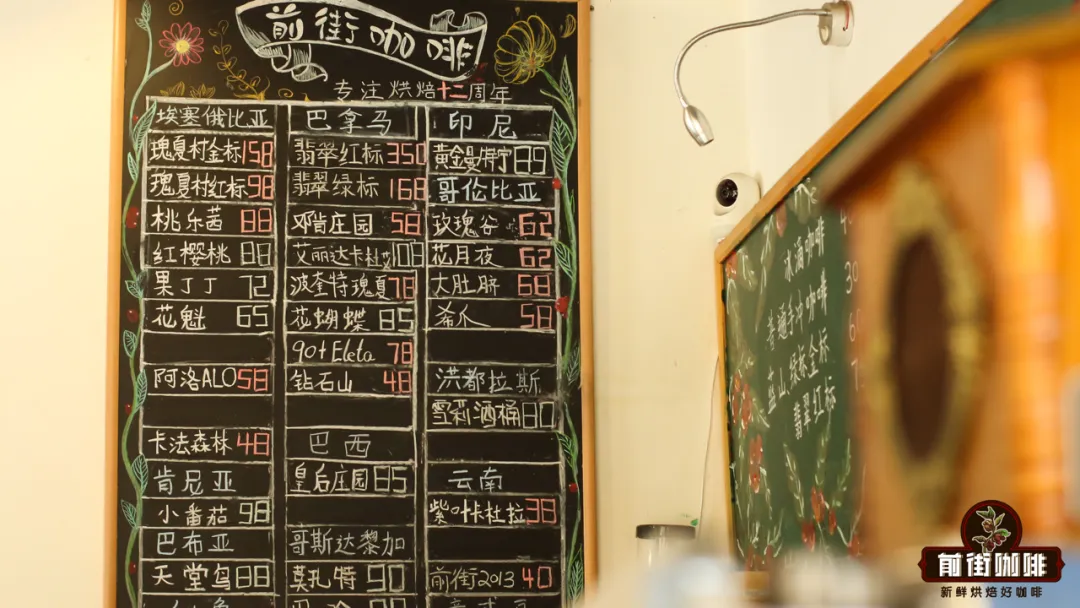 前街咖啡
专注烘焙十二周年
埃塞俄比亚
瑰夏村金标158
瑰夏村红标98
桃乐茜 88
红樱桃 88
果丁丁 72
花魁 65
阿洛ALO58
卡法森林 48
肯尼亚
小番茄 98
巴布亚
天堂鸟88
巴拿马
翡翠红标 350
翡翠绿标 168
邓肯庄园 58
艾丽达卡杜艾108
波奎特瑰夏78
花蝴蝶 85
90+Eleta 78
钻石山 48
巴西
皇后庄园85
哥斯达黎加
莫扎特 90
印尼
黄金曼特宁89
哥伦比亚
玫瑰谷 62
花月夜 62
大肚脐 68
希爪 58
洪都拉斯
雪莉酒桶80
云南
紫叶卡杜拉38
前街2013 40
冰滴咖啡
普通手冲咖啡
蓝山,绿标,金标
翡翠红标
前街咖啡
新鲜烘焙好咖啡